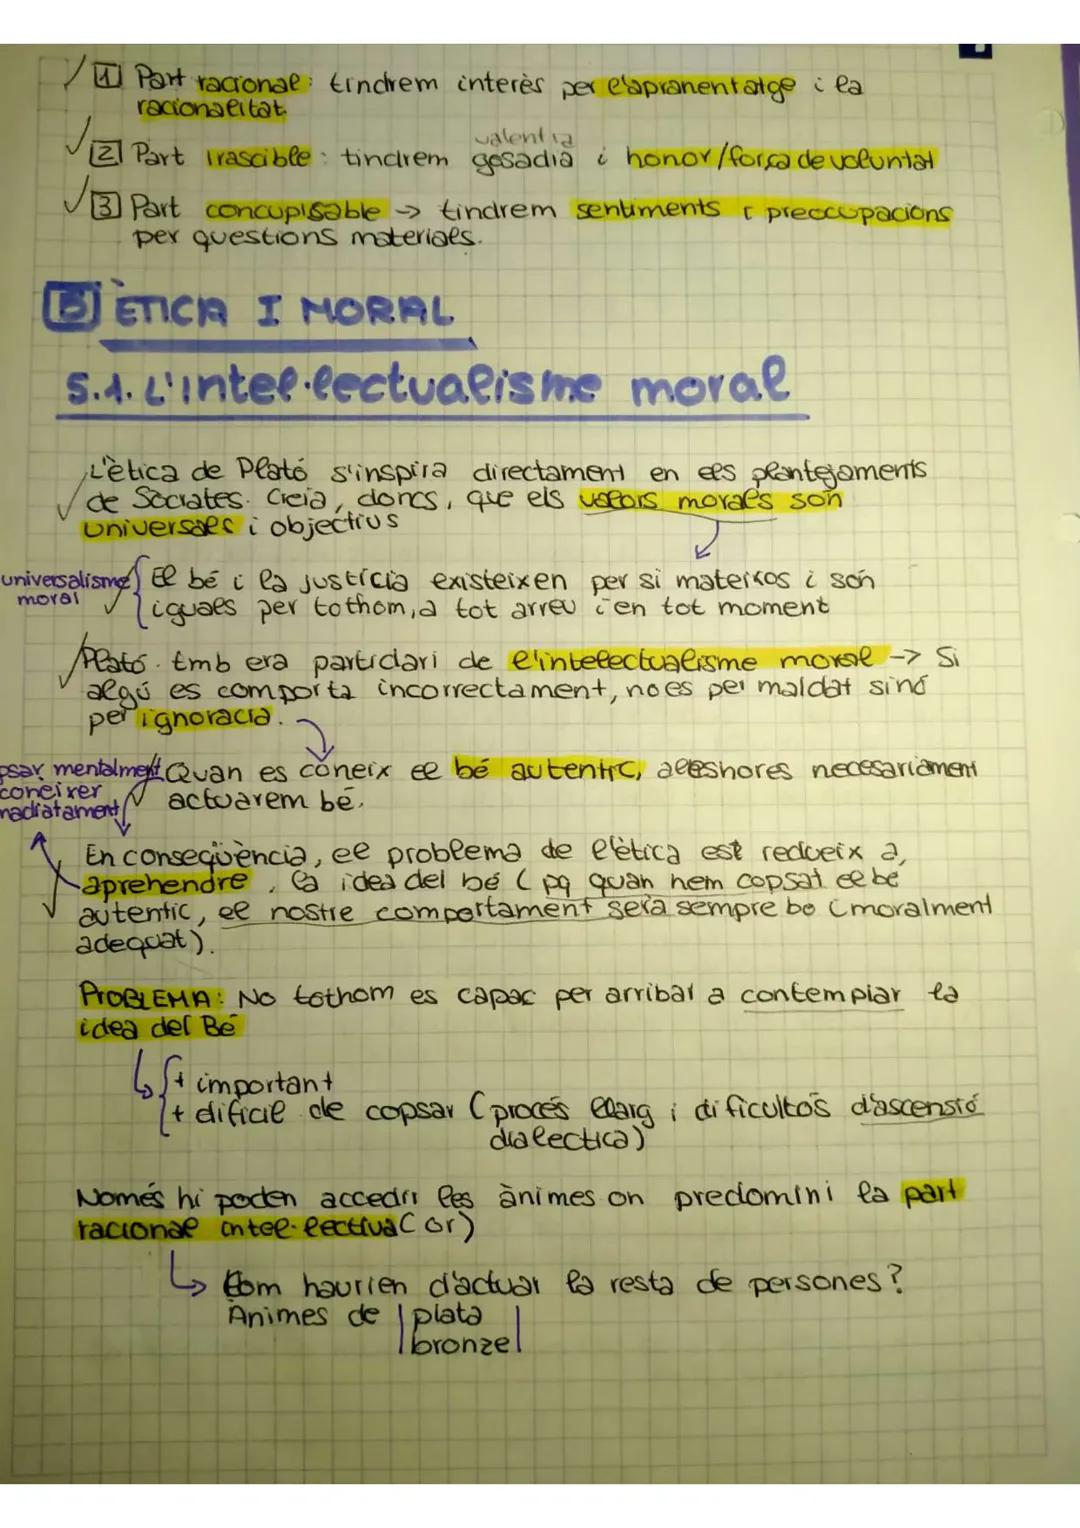 1 Part racional: tindrem interès per l'apranentatge i la
racionalitat.
valentia
2 Part irascible: tindrem gosadia i honor/força de voluntat
3 Part concupisable → tindrem sentiments i preocupacions
per questions materials.
5 ÈTICA I MORAL
5.1. L'intel·lectualisme moral
L'ètica de Plató s'inspira directament en els plantejaments
de Sòcrates. Creia, doncs, que els valors morals són
universals i objectius
universalisme
moral
El bé i la justícia existeixen per si mateixos i són
iguals per tothom, a tot arreu i en tot moment
Plató tmb era partidari de l'intelectualisme moral → Si
algú es comporta incorrectament, no es per maldat sinó
per ignoracia.
psar mentalment
coneixer
madiatament
Quan es coneix el bé autentic, alleshores necesariament
actuarem bé.
En conseqüència, el problema de l'ètica est redueix a,
aprehendre, la idea del bé (pq quan hem copsat el bé
autentic, el nostre comportament serà sempre bo (moralment
adequat).
PROBLEMA: No tothom es capac per arribar a contemplar la
idea del Bé
+ important
+ dificil de copsar (procés llarg i dificultós d'ascensió
dialectica)
Només hi poden accedir les ànimes on predomini la part
racional intel·lectiva (or)
Com haurien d'actuar la resta de persones?
Ànimes de plata
bronze